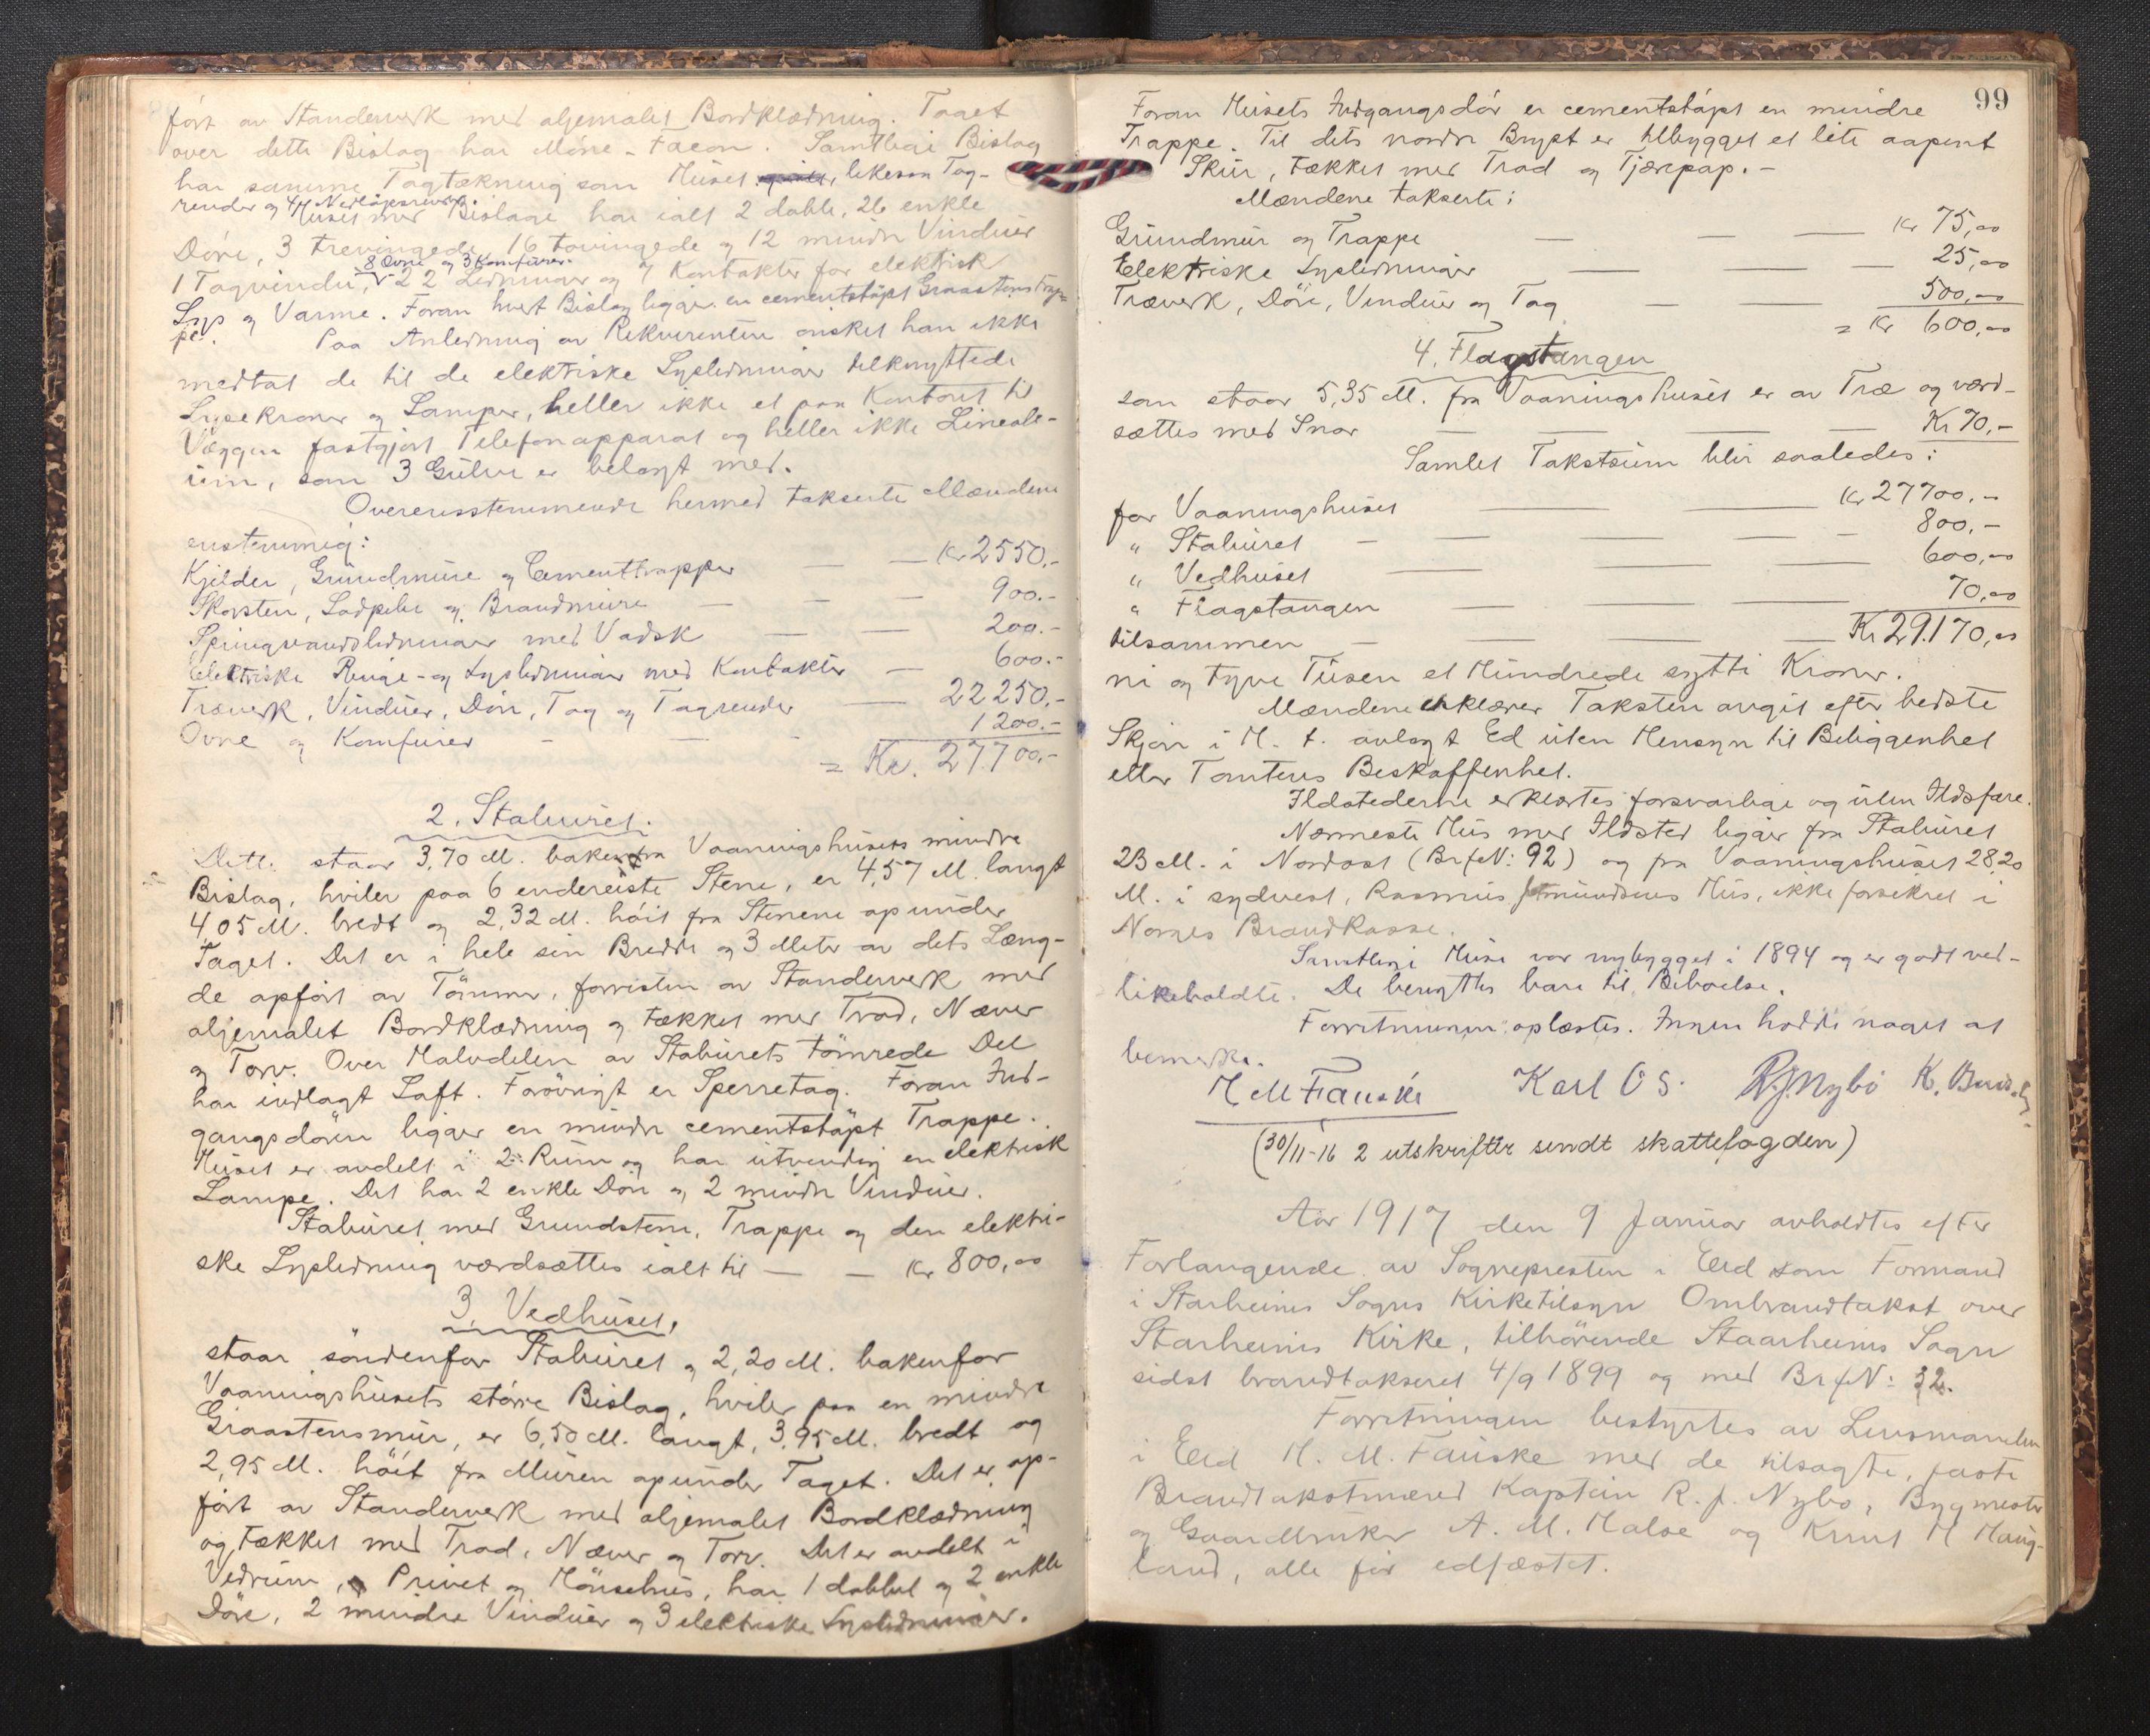 ført av Standerverk med oljemalet Bordklædning. Taget
over dette Bislag har Møne-Facon. Samtlige Bislag
har samme Tagtækning som Huset, likesom Tag-
render og 4 Nedløpsrender.
Huset med Bislage har ialt 2 doble, 26 enkle
Døre, 3 trevingede, 16 tovingede og 12 mindre Vinduer
8 Ovne og 3 Komfurer.
1 Tagvindu, 22 Ledninger og 7 Kontakter for elektrisk
Lys og Varme. Foran hvert Bislag ligger en cementstøpt Graastenstrap-
pe.
Paa Anledning av Rekvirenten ønsket han ikke
medtat de til de elektriske Lysledninger tilknyttede
Lysekroner og Lamper, heller ikke et paa Kontoret til
Væggen fastgjort Telefonapparat og heller ikke Linole-
um, som 3 Gulve er belagt med.
Overensstemmende hermed takserte Mændene
enstemmig:
Kjelder, Grundmure og Cementtrapper — — Kr 2550.-
Skorsten, Ladpiber og Brandmure — — — 900.-
Springvandsledninger med Vadsk — — 200.-
Elektriske Ringe- og Lysledninger med Kontakter — 600.-
Træverk, Vinduer, Døre, Tag og Tagrender — 22250,-
Ovne og Komfurer - — 1200.-
= Kr. 27700,-
2. Staburet.
Dette staar 3,70 M. bakenfra Vaaningshusets mindre
Bislag, hviler paa 6 endereiste Stene, er 4,57 M. langt
4,05 M. bredt og 2,32 M. høit fra Stenene op under
Taget. Det er i hele sin Bredde og 3 Meter av dets Læng-
de opført av Tømmer, forresten av Standerverk med
oljemalet Bordklædning og tækket med Trod, Næver
og Torv. Over Halvdelen av Staburets tømrede Del
har indlagt Loft. Forøvrigt er Sperretag. Foran Ind-
gangsdøren ligger en mindre cementstøpt Trappe.
Huset er avdelt i 2 Rum og har utvendig en elektrisk
Lampe. Det har 2 enkle Døre og 2 mindre Vinduer.
Staburet med Grundstene, Trappe og den elektri-
ske Lysledning værdsættes ialt til — — Kr 800,00
3. Vedhuset,
staar søndenfor Staburet og 2,20 M. bakenfor
Vaaningshusets større Bislag, hviler paa en mindre
Graastensmur, er 6,50 M. langt, 3,95 M. bredt og
2,95 M. høit fra Muren op under Taget. Det er op-
ført av Standerverk med oljemalet Bordklædning
og tækket med Trod, Næver og Torv. Det er avdelt i
Vedrum, Privet og Hønsehus, har 1 dobbel og 2 enkle
Døre, 2 mindre Vinduer og 3 elektriske Lysledninger.
99
Foran Husets Indgangsdør er cementstøpt en mindre
Trappe. Til dets nordre Bryst er tilbygget et lite aapent
Skur, tækket med Trod og Tjærepap. -
Mændene takserte:
Grundmur og Trappe — — — Kr 75,00
Elektriske Lysledninger — — — 25,00
Træverk, Døre, Vinduer og Tag — — 500,00
= Kr 600,00
4. Flagstangen
som staar 5,35 M. fra Vaaningshuset er av Træ og værd-
sættes med Snor — — — — Kr 70,-
Samlet Takstsum blir saaledes:
for Vaaningshuset — — — Kr 27700,-
" Staburet - — — — 800,-
" Vedhuset — — — 600,00
" Flagstangen — — — 70,00
tilsammen - — — Kr 29.170,00
ni og tyve Tusen et Hundrede sytti Kroner.
Mændene erklærer Taksten avgit efter bedste
Skjøn i H. t. avlagt Ed uten Hensyn til Beliggenhet
eller Tomtens Beskaffenhet.
Ildstederne erklærtes forsvarlige og uten Ildsfare.
Nærmeste Hus med Ildsted ligger fra Staburet
23 M. i Nordost (Br f N: 92) og fra Vaaningshuset 28,20
M. i sydvest, Rasmus Hus, ikke forsikret i
Norges Brandkasse.
Samtlige Huse var nybygget i 1894 og er godt ved-
likeholdte. De benyttes bare til Beboelse.
Forretningen oplæstes. Ingen hadde noget at
bemerke.
H M Fauske Karl O S. R. J. Nybø K.
(30/11-16 2 utskrifter sendt skattefogden)
Aar 1917 den 9 Januar avholdtes efter
Forlangende av Sognepresten i Eid som Formand
i Starheims Sogns Kirketilsyn Ombrandtakst over
Starheims Kirke, tilhørende Staarheims Sogn
sidst brandtakseret 4/9 1899 og med Br f N: 32.
Forretningen bestyrtes av Lensmanden
i Eid H. M. Fauske med de tilsagte, faste
Brandtakstmænd Kaptein R. J. Nybø, Bygmester
og Gaardbruker A. M. Malse og Knut H Haug-
land, alle før edfæstet.